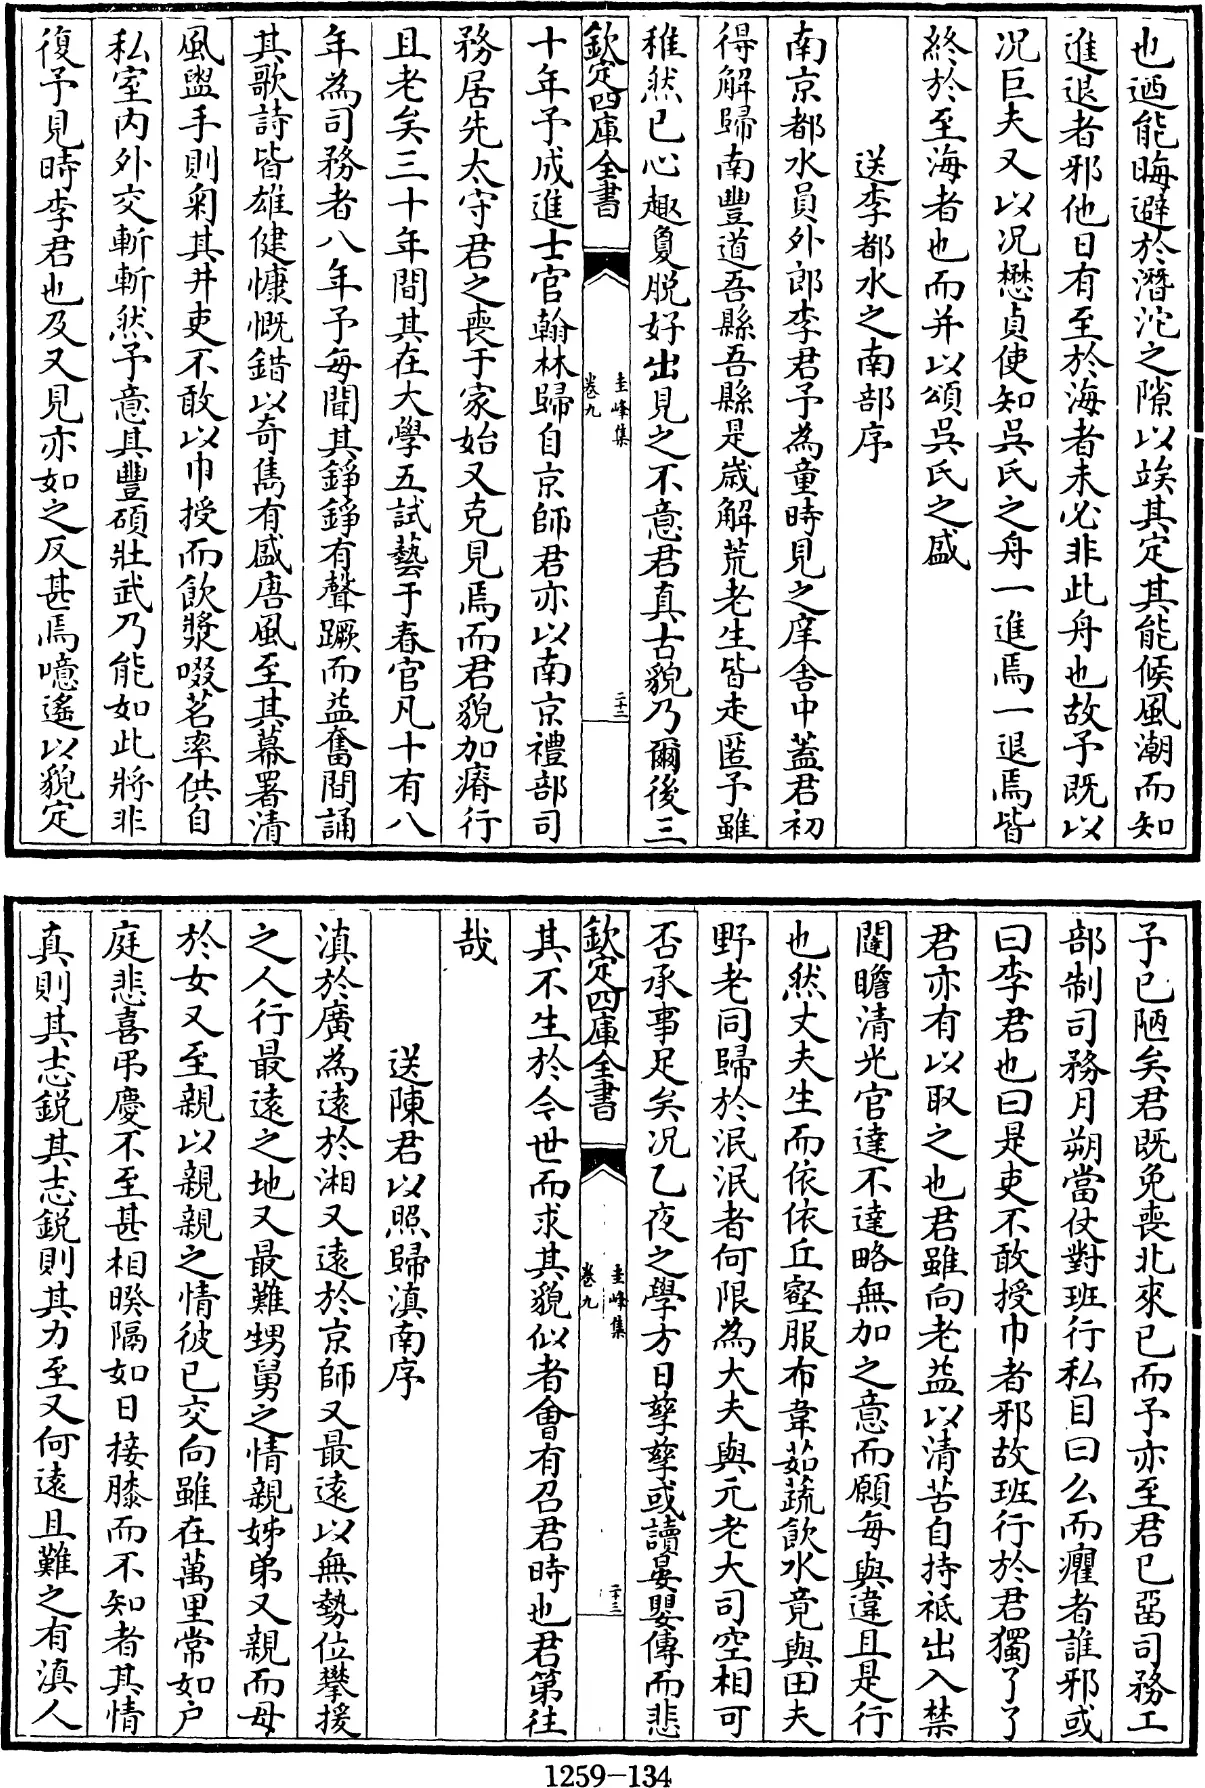 也迺能晦避於潛沱之隙以竢其定其能候風潮而知
進退者邪他日有至於海者未必非此舟也故予既以
况巨夫又以况懋貞使知吳氏之舟一進焉一退焉皆
終於至海者也而并以頌吳氏之盛
送李都水之南部序
南京都水員外郎李君予為童時見之庠舍中蓋君初
得解歸南豐道吾縣吾縣是歲解荒老生皆走匿予雖
稚然已心趣敻脫好出見之不意君真古貌乃爾後三
欽定四庫全書
圭峰集
卷九
二十二
十年予成進士官翰林歸自京師君亦以南京禮部司
務居先太守君之喪于家始又克見焉而君貌加瘠行
且老矣三十年間其在大學五試藝于春官凡十有八
年為司務者八年予每聞其錚錚有聲蹶而益奮間誦
其歌詩皆雄健慷慨錯以奇雋有盛唐風至其幕署清
風盥手則匊其井吏不敢以巾授而飲漿啜茗率供自
私室内外交斬斬然予意其豐碩壯武乃能如此將非
復予見時李君也及又見亦如之反甚焉噫遙以貌定
予已陋矣君既免喪北來已而予亦至君已畱司務工
部制司務月朔當仗對班行私目曰么而癯者誰邪或
曰李君也曰是吏不敢授巾者邪故班行於君獨了了
君亦有以取之也君雖向老益以清苦自持祗出入禁
闥瞻清光官達不達略無加之意而願每與違且是行
也然丈夫生而依依丘壑服布韋茹蔬飲水竟與田夫
野老同歸於泯泯者何限為大夫與元老大司空相可
否承事足矣况乙夜之學方日孳孳或讀晏嬰傳而悲
欽定四庫全書
圭峰集
卷九
二十三
其不生於今世而求其貌似者會有召君時也君第往
哉
送陳君以照歸滇南序
滇於廣為遠於湘又遠於京師又最遠以無勢位攀援
之人行最遠之地又最難甥舅之情親姊弟又親而母
於女又至親以親親之情彼已交向雖在萬里常如户
庭悲喜弔慶不至甚相暌隔如日接膝而不知者其情
真則其志銳其志銳則其力至又何遠且難之有滇人
1259-134